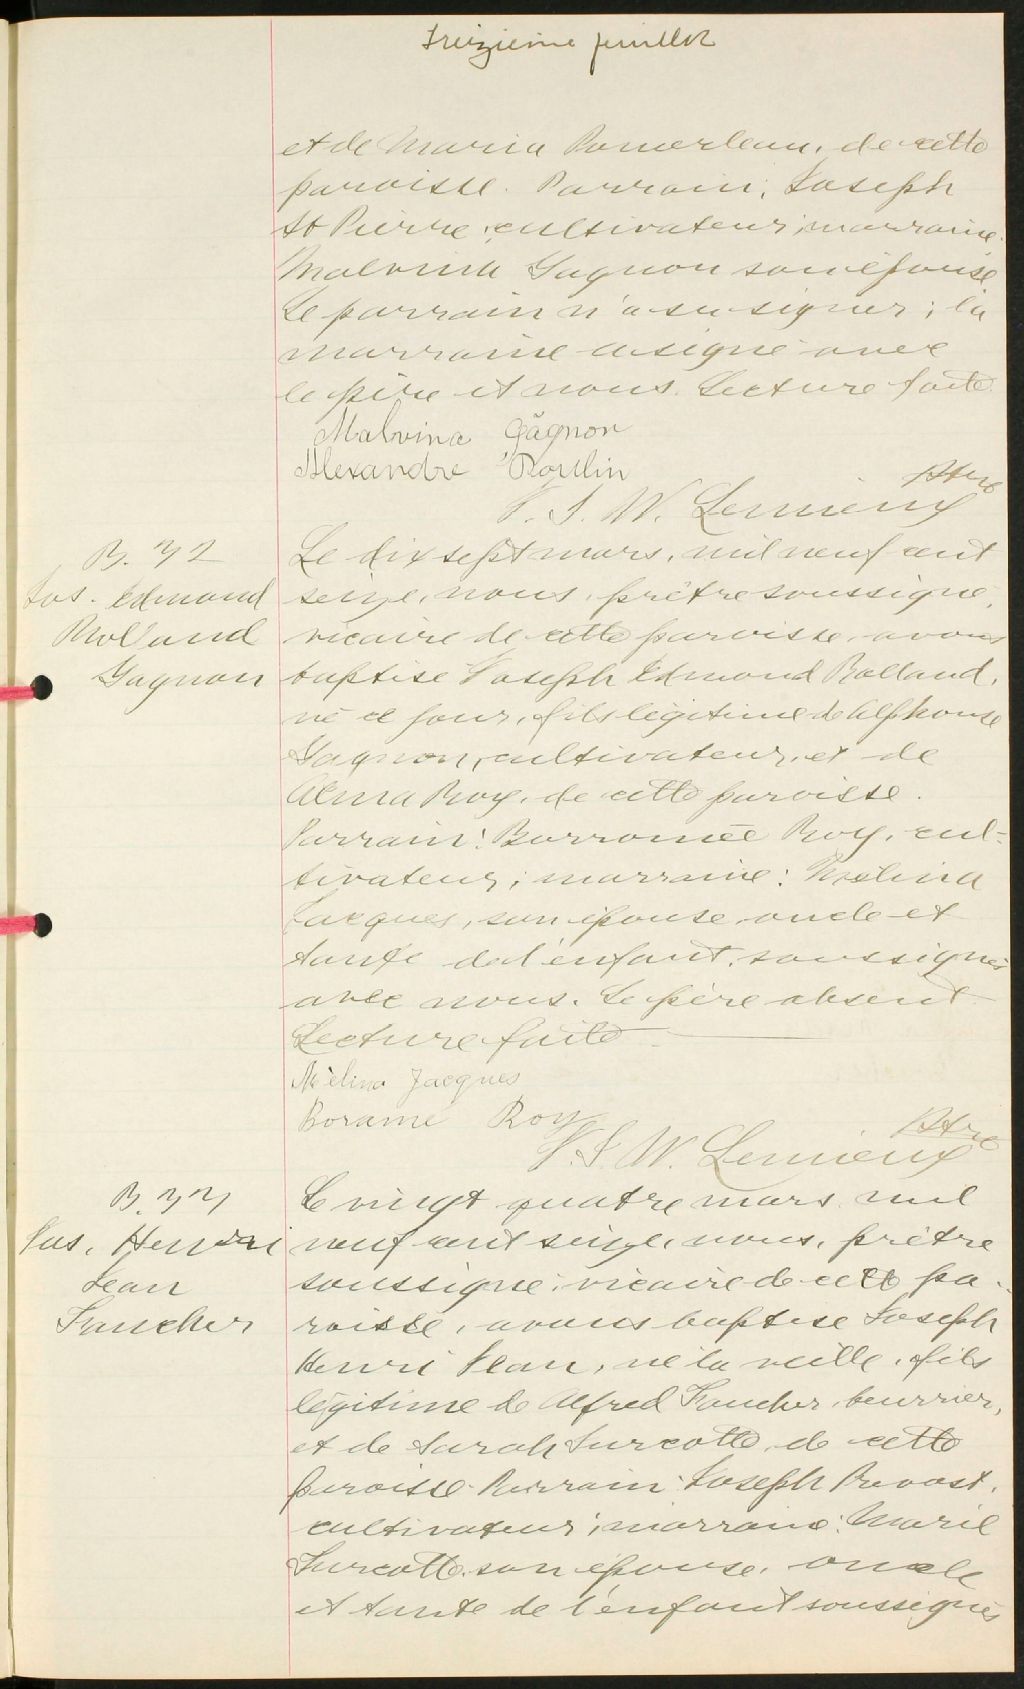 Treizième feuillet
et de Maria Pomerleau, de cette
paroisse. Parrain: Joseph
St Pierre, cultivateur; marraine
Malvina Gagnon son épouse
Le parrain n'a su signer; la
marraine a signé avec
le père et nous. Lecture faite.
Malvina Gagnon
Alexandre Poulin
J. S. W. Lemieux Ptre
B. 32
Jos. Edmond
Rolland
Gagnon
Le dix sept mars, mil neuf cent
seize, nous, prêtre soussigné,
vicaire de cette paroisse, avons
baptisé Joseph Edmond Rolland,
né ce jour, fils légitime de Alphonse
Gagnon, cultivateur, et de
Alma Roy, de cette paroisse.
Parrain: Borromée Roy, cul-
tivateur; marraine: Mélina
Jacques, son épouse oncle et
tante de l'enfant, soussignés
avec nous. Le père absent
Lecture faite
Mélina Jacques
Boramé Roy
J. S. W. Lemieux Ptre
B. 33
Jos. Henri
Jean
Faucher
Le vingt quatre mars mil
neuf cent seize, nous, prêtre
soussigné, vicaire de cette pa-
roisse, avons baptisé Joseph
Henri Jean, né la veille, fils
légitime de Alfred Faucher, beurrier,
et de Sarah Turcotte, de cette
paroisse. Parrain: Joseph Provost,
cultivateur; marraine: Marie
Turcotte, son épouse, oncle
et tante de l'enfant soussignés